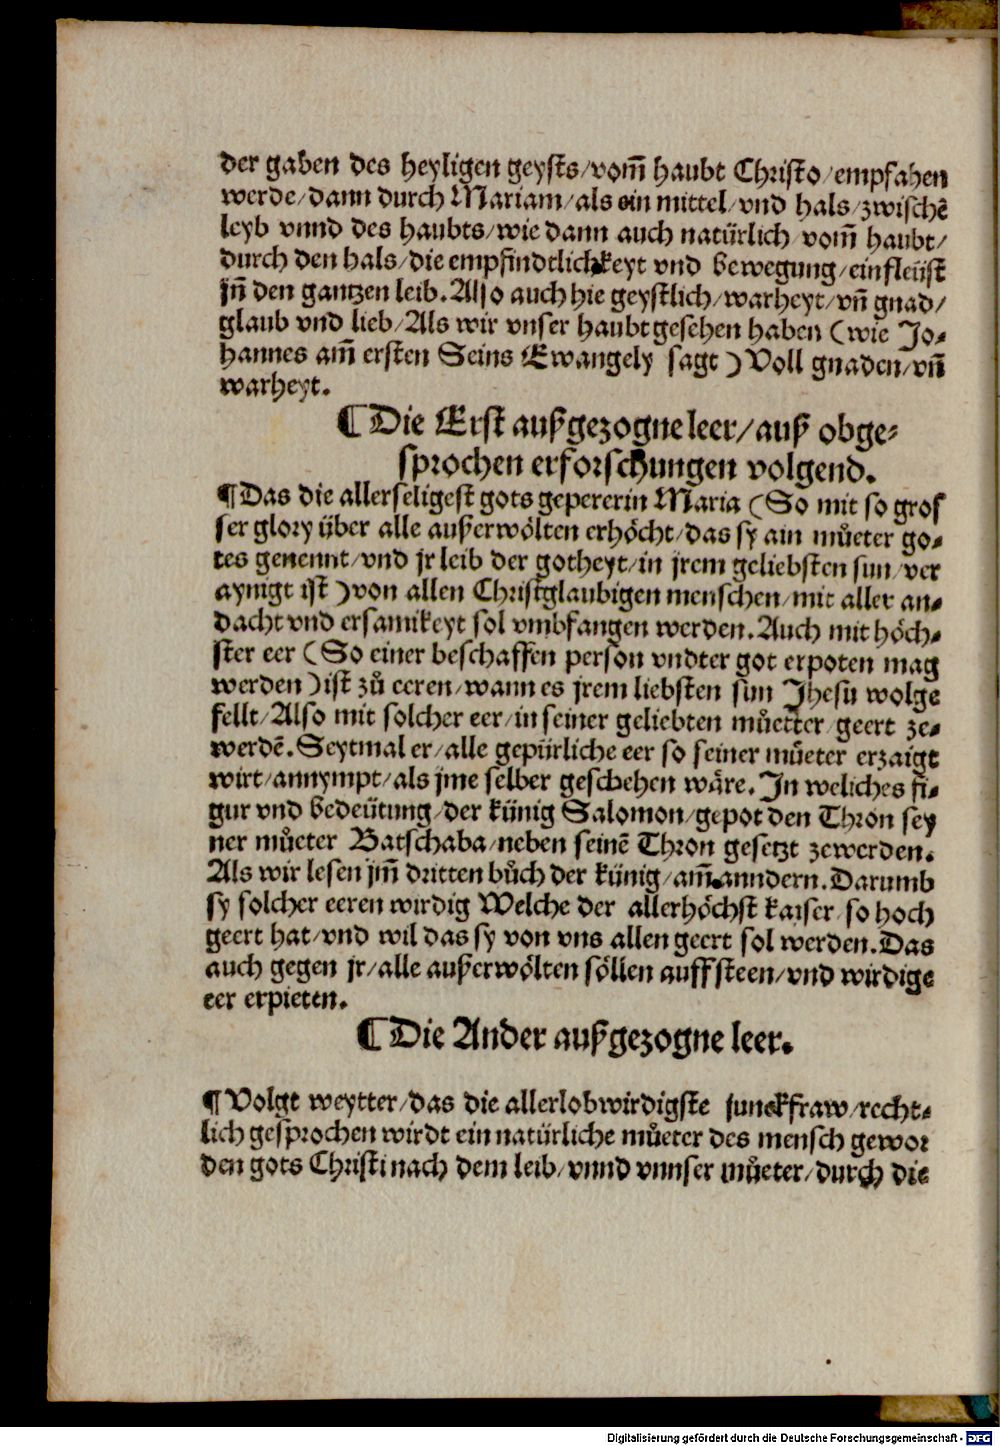 der gaben des heyligen geysts/vom̃ haubt Christo/empfahen
werde/dann durch Mariam/als ein mittel/vnd hals/zwischẽ
leyb vnnd des haubts/wie dann auch natürlich/vom̃ haubt/
durch den hals/die empfindtlichkeyt vnd bewegung/einfleüst
jñ den gantzen leib. Also auch hie geystlich/warheyt/vñ gnad/
glaub vnd lieb/Als wir vnser haubt gesehen haben (wie Jo-
hannes am̃ ersten Seins Ewangely sagt) Voll gnaden/vñ
warheyt.
¶ Die Erst außgezogne leer/auß obge-
sprochen erforschungen volgend.
¶ Das die allerseligest gots gepererin Maria (So mit so gros
ser glory über alle außerwölten erhöcht/das sy ain můeter go-
tes genennt/vnd jr leib der gotheyt/in jrem geliebsten sun/ver
aynigt ist) von allen Christglaubigen menschen/mit aller an-
dacht vnd ersamikeyt sol vmbfangen werden. Auch mit höch-
ster eer (So einer beschaffen person vndter got erpoten mag
werden) ist zů eeren/wann es jrem liebsten sun Jhesu wolge
fellt/Also mit solcher eer/in seiner geliebten můetter/geert ze-
werdẽ. Seytmal er/alle gepürliche eer so seiner můeter erzaigt
wirt/annympt/als jme selber geschehen wäre. In weliches fi-
gur vnd bedeütung/der künig Salomon/gepot den Thron sey
ner můeter Batschaba/neben seinẽ Thron gesetzt zewerden.
Als wir lesen jm̃ dritten bůch der künig/am̃ anndern. Darumb
sy solcher eeren wirdig Welche der allerhöchst kaiser/so hoch
geert hat/vnd wil das sy von vns allen geert sol werden. Das
auch gegen jr/alle außerwölten söllen auffsteen/vnd wirdige
eer erpieten.
¶ Die Ander außgezogne leer.
¶ Volgt weytter/das die allerlobwirdigste junckfraw/recht-
lich gesprochen wirdt ein natürliche můeter des mensch gewor
den gots Christi nach dem leib/vnnd vnnser můeter/durch die
Digitalisierung gefördert durch die Deutsche Forschungsgemeinschaft - DFG